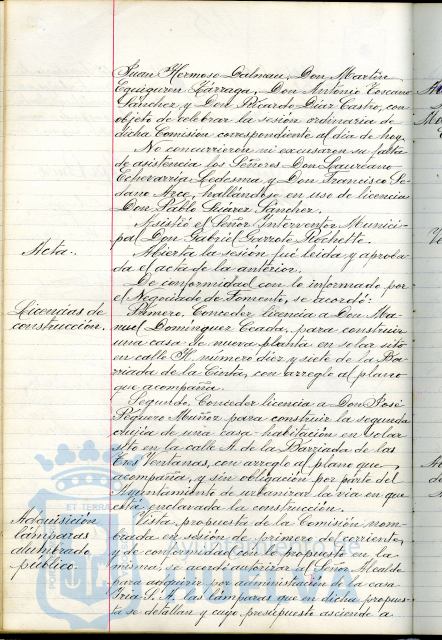 Juan Hermoso Dalmau, Don Martín
Equiguren Lárraga, Don Antonio Toscano
Sánchez, y Don Ricardo Díaz Castro, con
objeto de celebrar la sesión ordinaria de
dicha Comisión correspondiente al día de hoy.
No concurrieron ni excusaron su falta
de asistencia los Señores Don Laureano
Echevarría Ledesma y Don Francisco Se-
dano Arce, hallándose en uso de licencia
Don Pablo Suárez Sánchez.
Asistió el Señor Interventor Munici-
pal Don Gabriel Garrote Rochette.
Acta.
Abierta la sesión fué leída y aproba-
da el acta de la anterior.
De conformidad con lo informado por
el Negociado de Fomento, se acordó:
Licencias de
construcción.
Primero. Conceder licencia a Don Ma-
nuel Domínguez Ceada, para construir
una casa de nueva planta en solar sito
en calle H. número diez y siete de la Ba-
rriada de la Cinta, con arreglo al plano
que acompaña.
Segundo. Conceder licencia a Don José
Peguero Muñoz para construir la segunda
crujía de una casa habitación en solar
sito en la calle A. de la Barriada de las
Tres Ventanas, con arreglo al plano que
acompaña, y sin obligación por parte del
Ayuntamiento de urbanizar la vía en que
está enclavada la construcción.
Adquisición
lámparas
alumbrado
público.
Vista propuesta de la Comisión nom-
brada en sesión de primero del corriente,
y de conformidad con lo propuesto en la
misma, se acordó autorizar al Señor Alcalde
para adquirir por administración de la casa
S. A. las lámparas que en dicha propues-
ta se detallan y cuyo presupuesto asciende a
ET TERRA